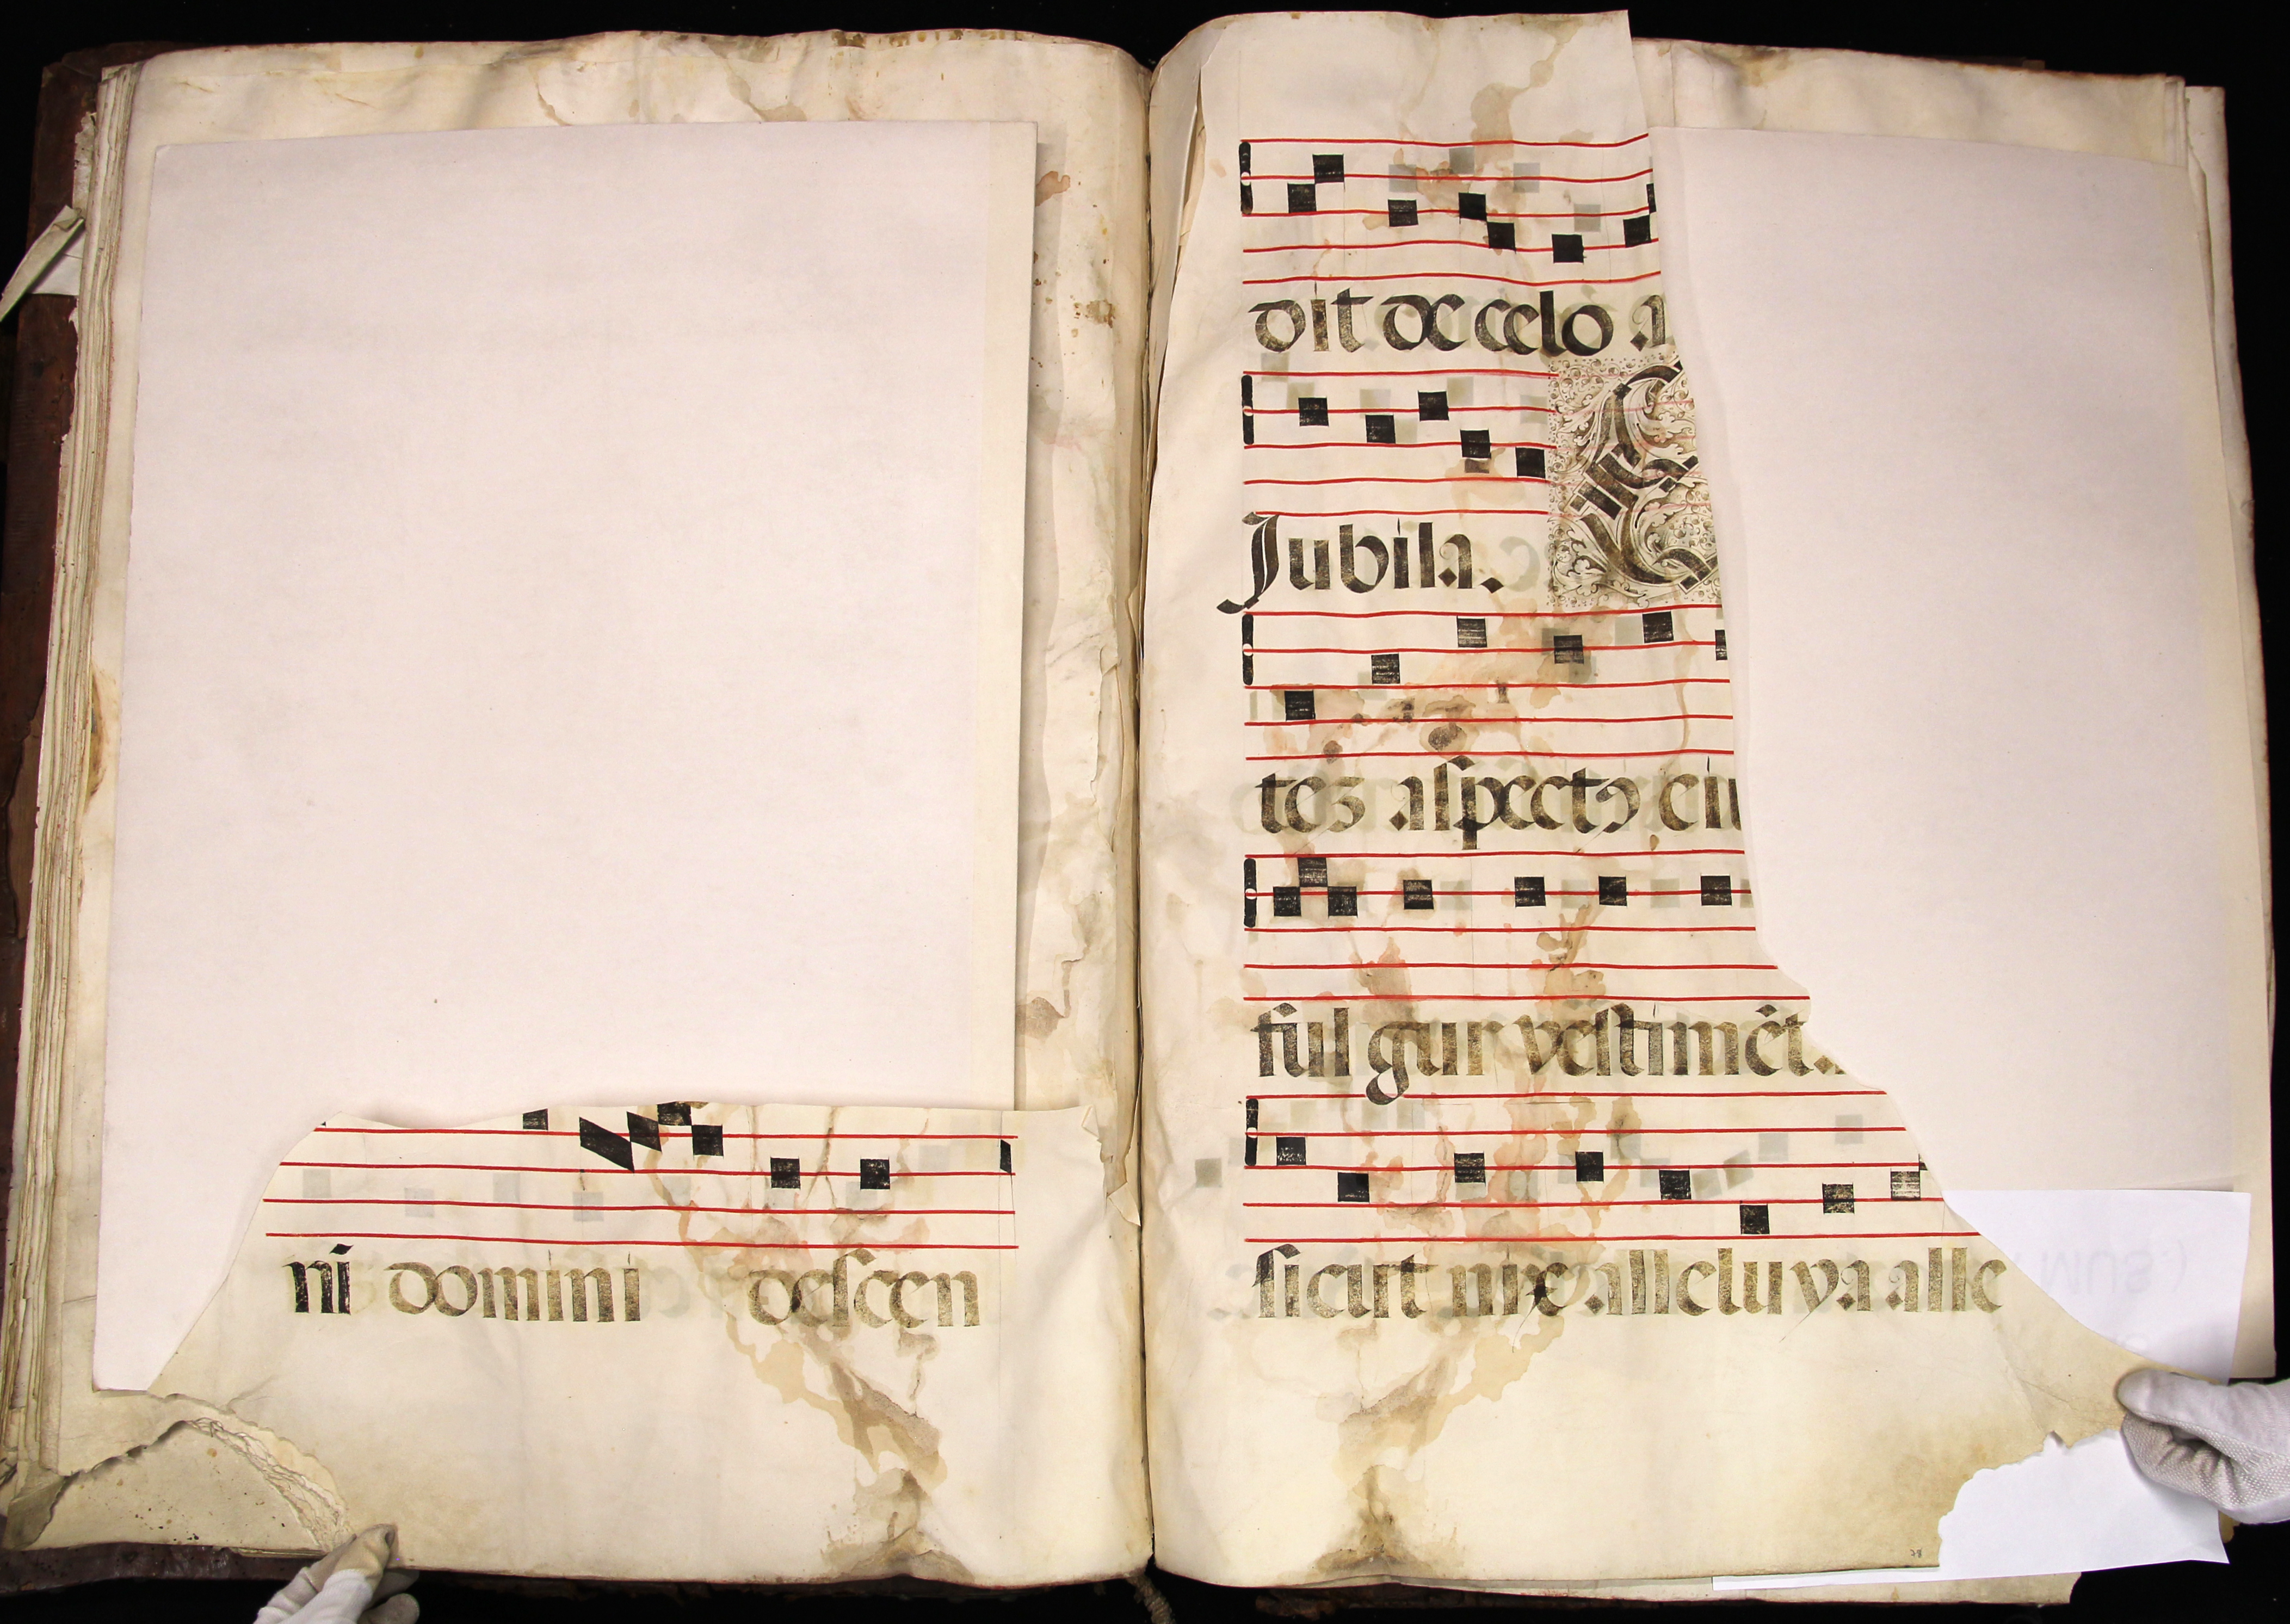 ni domini descen
dit de celo a
Jubila. E
tez aspectꝯ eiu
ful gur vestimēt.
sicut nix alleluya alle
78